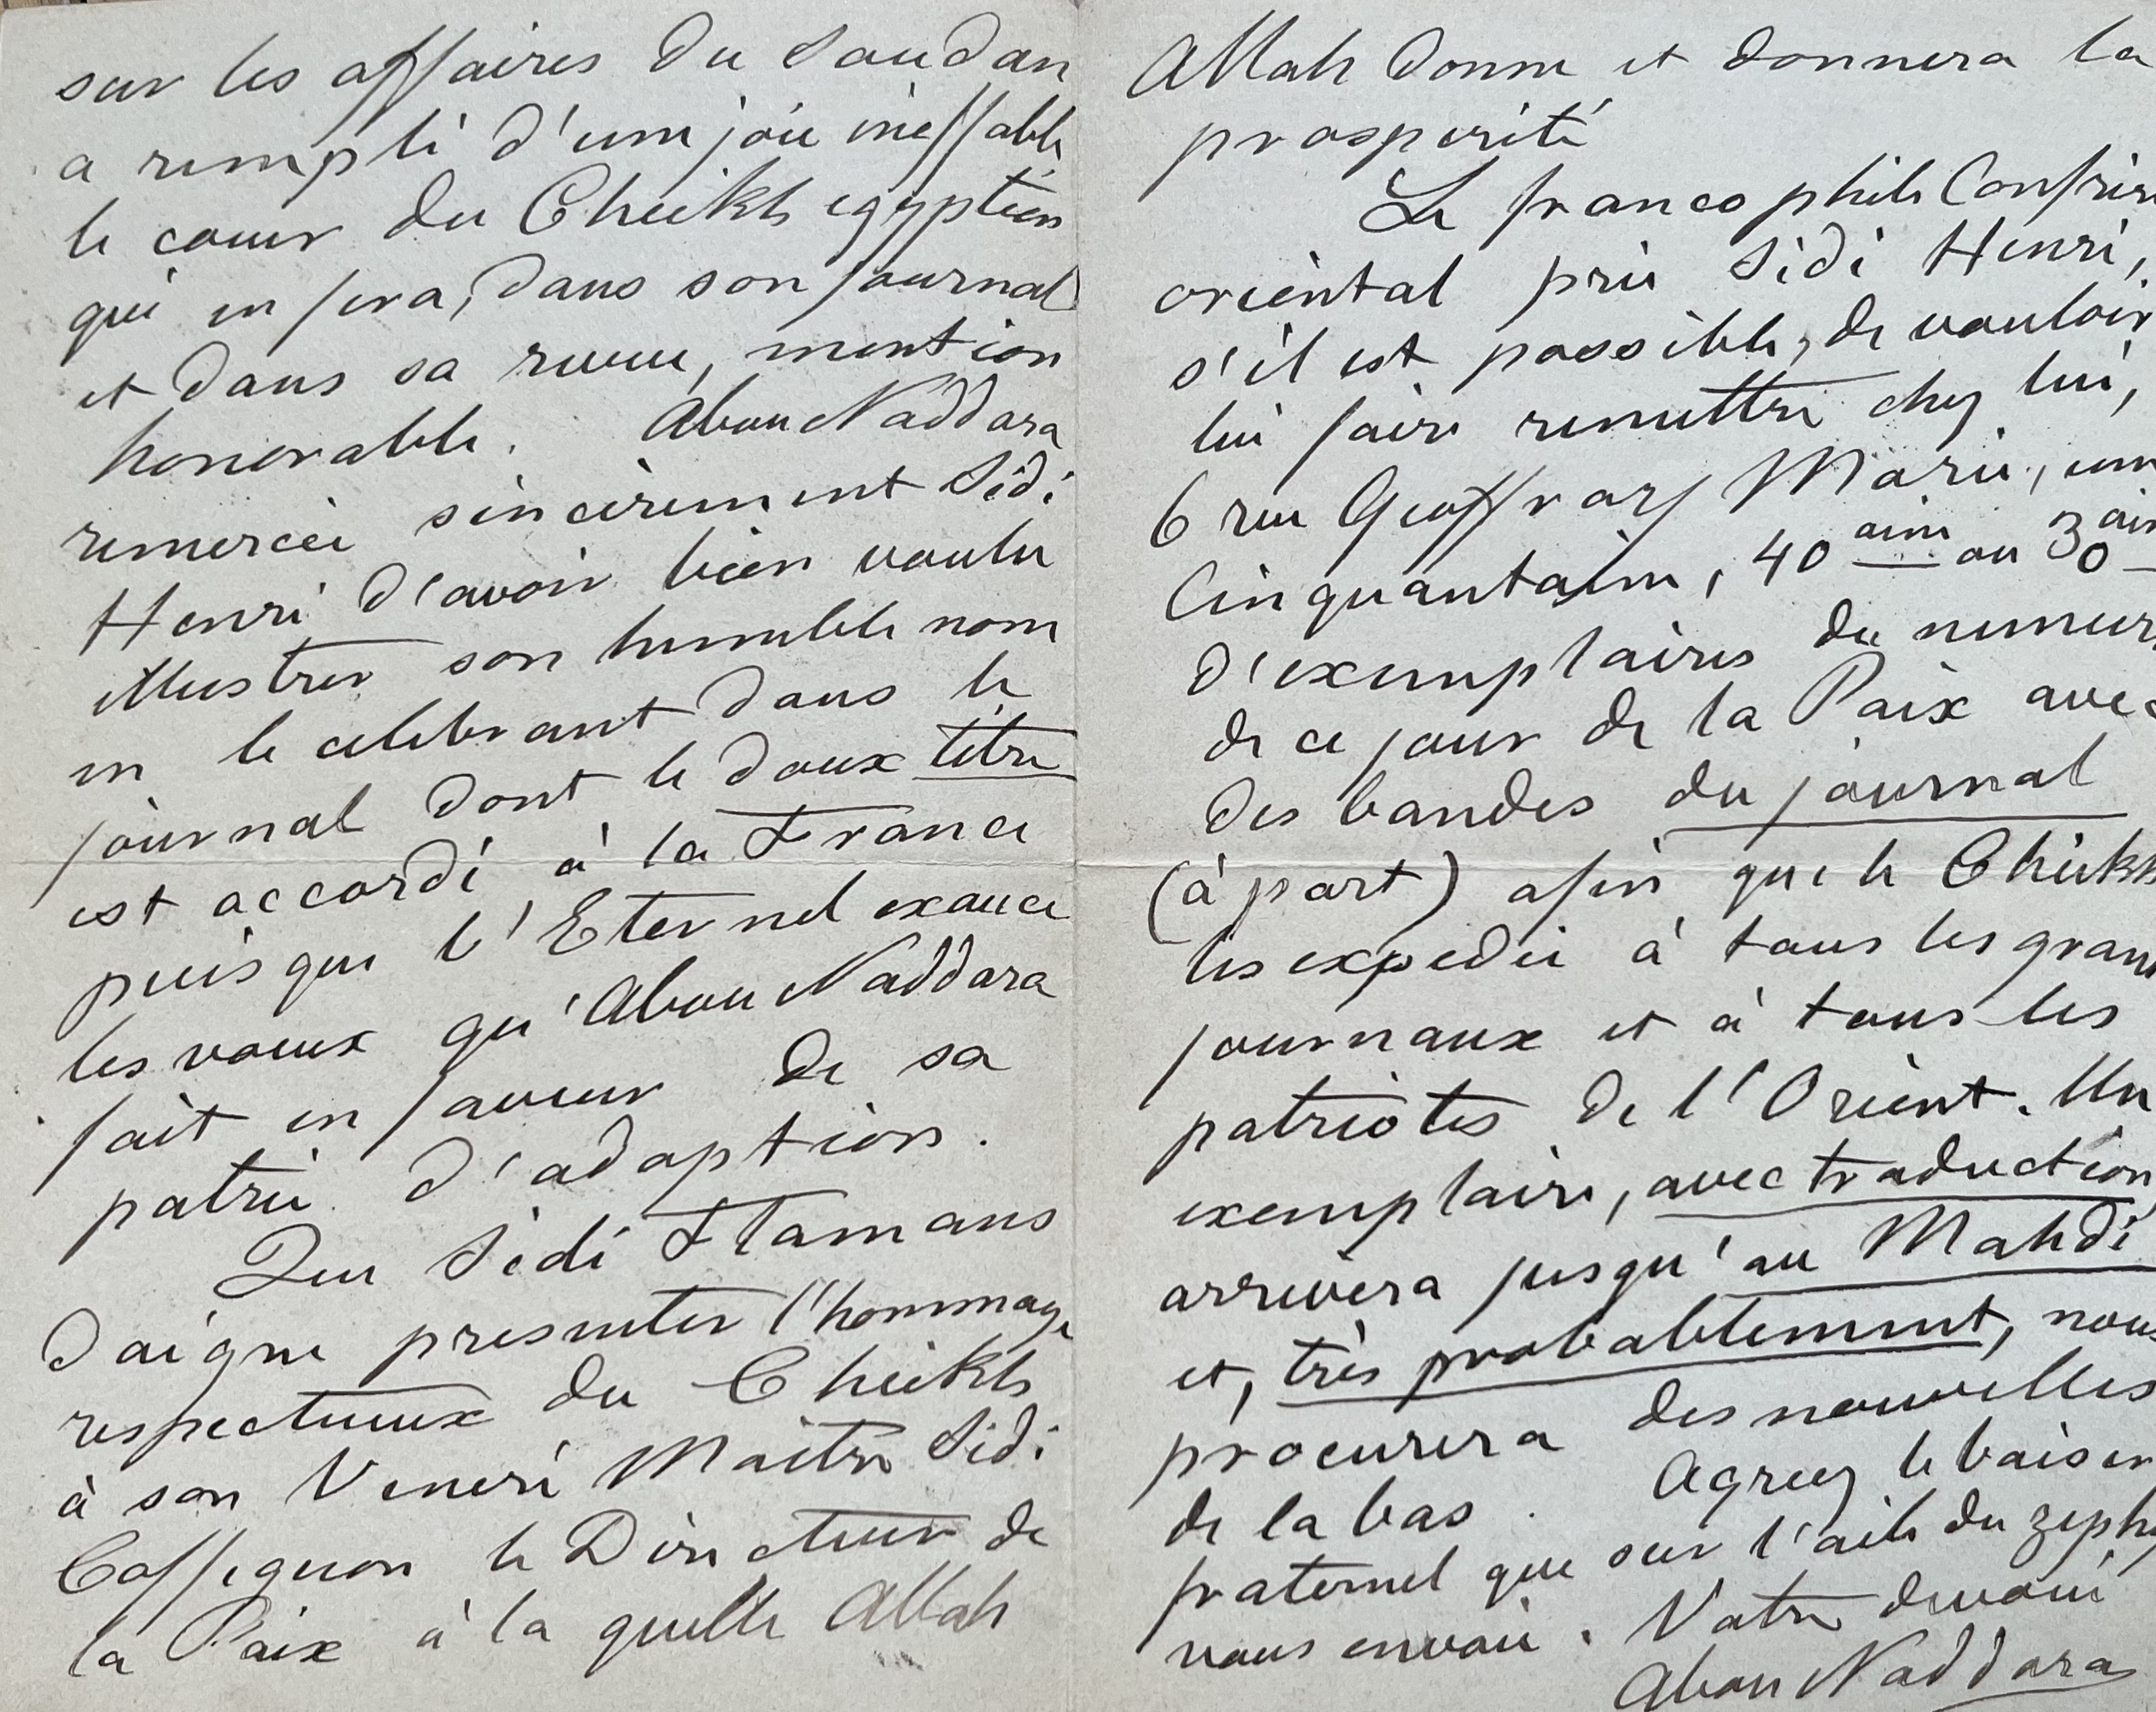 sur les affaires du Soudan
a rempli d'une joie ineffable
le coeur du Cheikh egyptien
qui en fera, dans son journal
et dans sa revue, mention
honorable. Abou Naddara
remercie sincèrement Sidi
Henri d'avoir bien voulu
illustrer son humble nom
en le celebrant dans le
journal dont le doux titre
est accordé à la France
puisque l'Eternel exauce
les voeux qu'Abou Naddara
fait en faveur de sa
patrie d'adoption.
Que Sidi Flamans
daigne presenter l'hommage
respectueux du Cheikh
à son Veneré Maitre Sidi
Coffignon le Directeur de
la Paix à la quelle Allah
Allah donne et donnera la
prosperité
Le francophile Confrère
oriental prie Sidi Henri,
s'il est possible, de vouloir
lui faire remettre chez lui,
6 rue Geoffroy Marie, une
Cinquantaine, 40aine ou 30ain
d'exemplaires du numero
de ce jour de la Paix avec
des bandes du journal
(à part) afin que le Cheikh
les expedie à tous les grand
journaux et à tous les
patriotes de l'Orient. Un
exemplaire, avec traduction,
arrivera jusqu'au Mahdi
et, très probablement, nous
procurera des nouvelles
de la bas. Agreez le baiser
fraternel que sur l'aile du zephy
vous envoie. Votre devoué
Abou Naddara